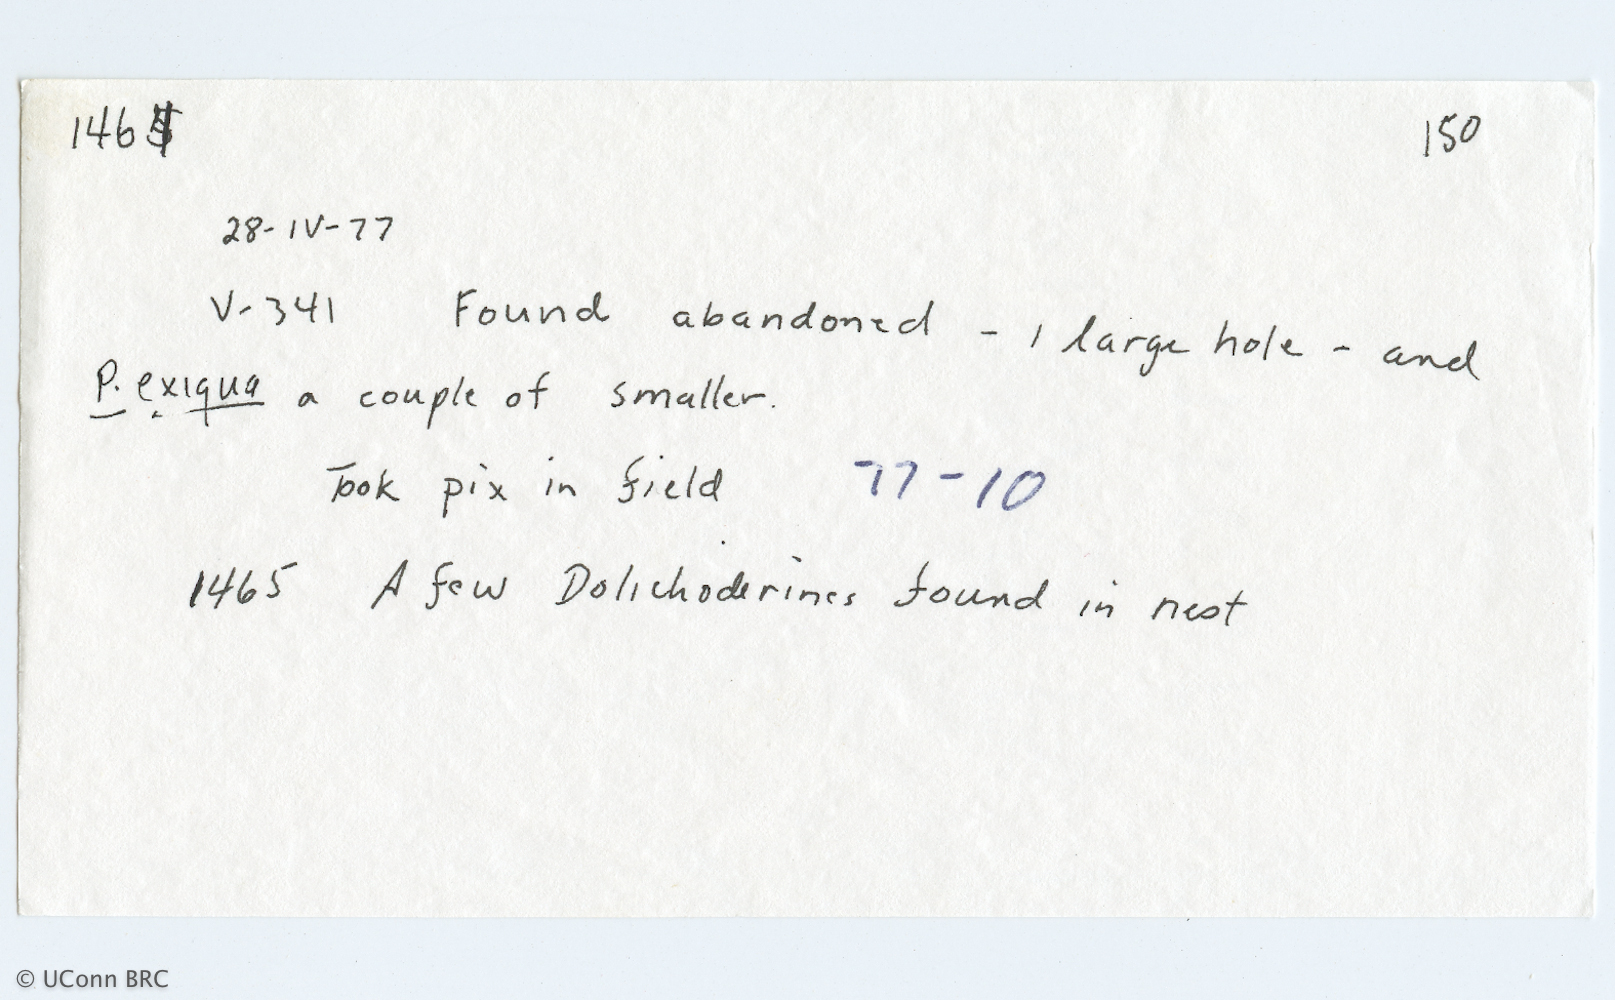 146
150
28-IV-77
V-341 Found abandoned - 1 large hole - and
P. exiqua a couple of smaller.
Took pix in field 77-10
1465 A few Dolichoderines found in nest
© UConn BRC